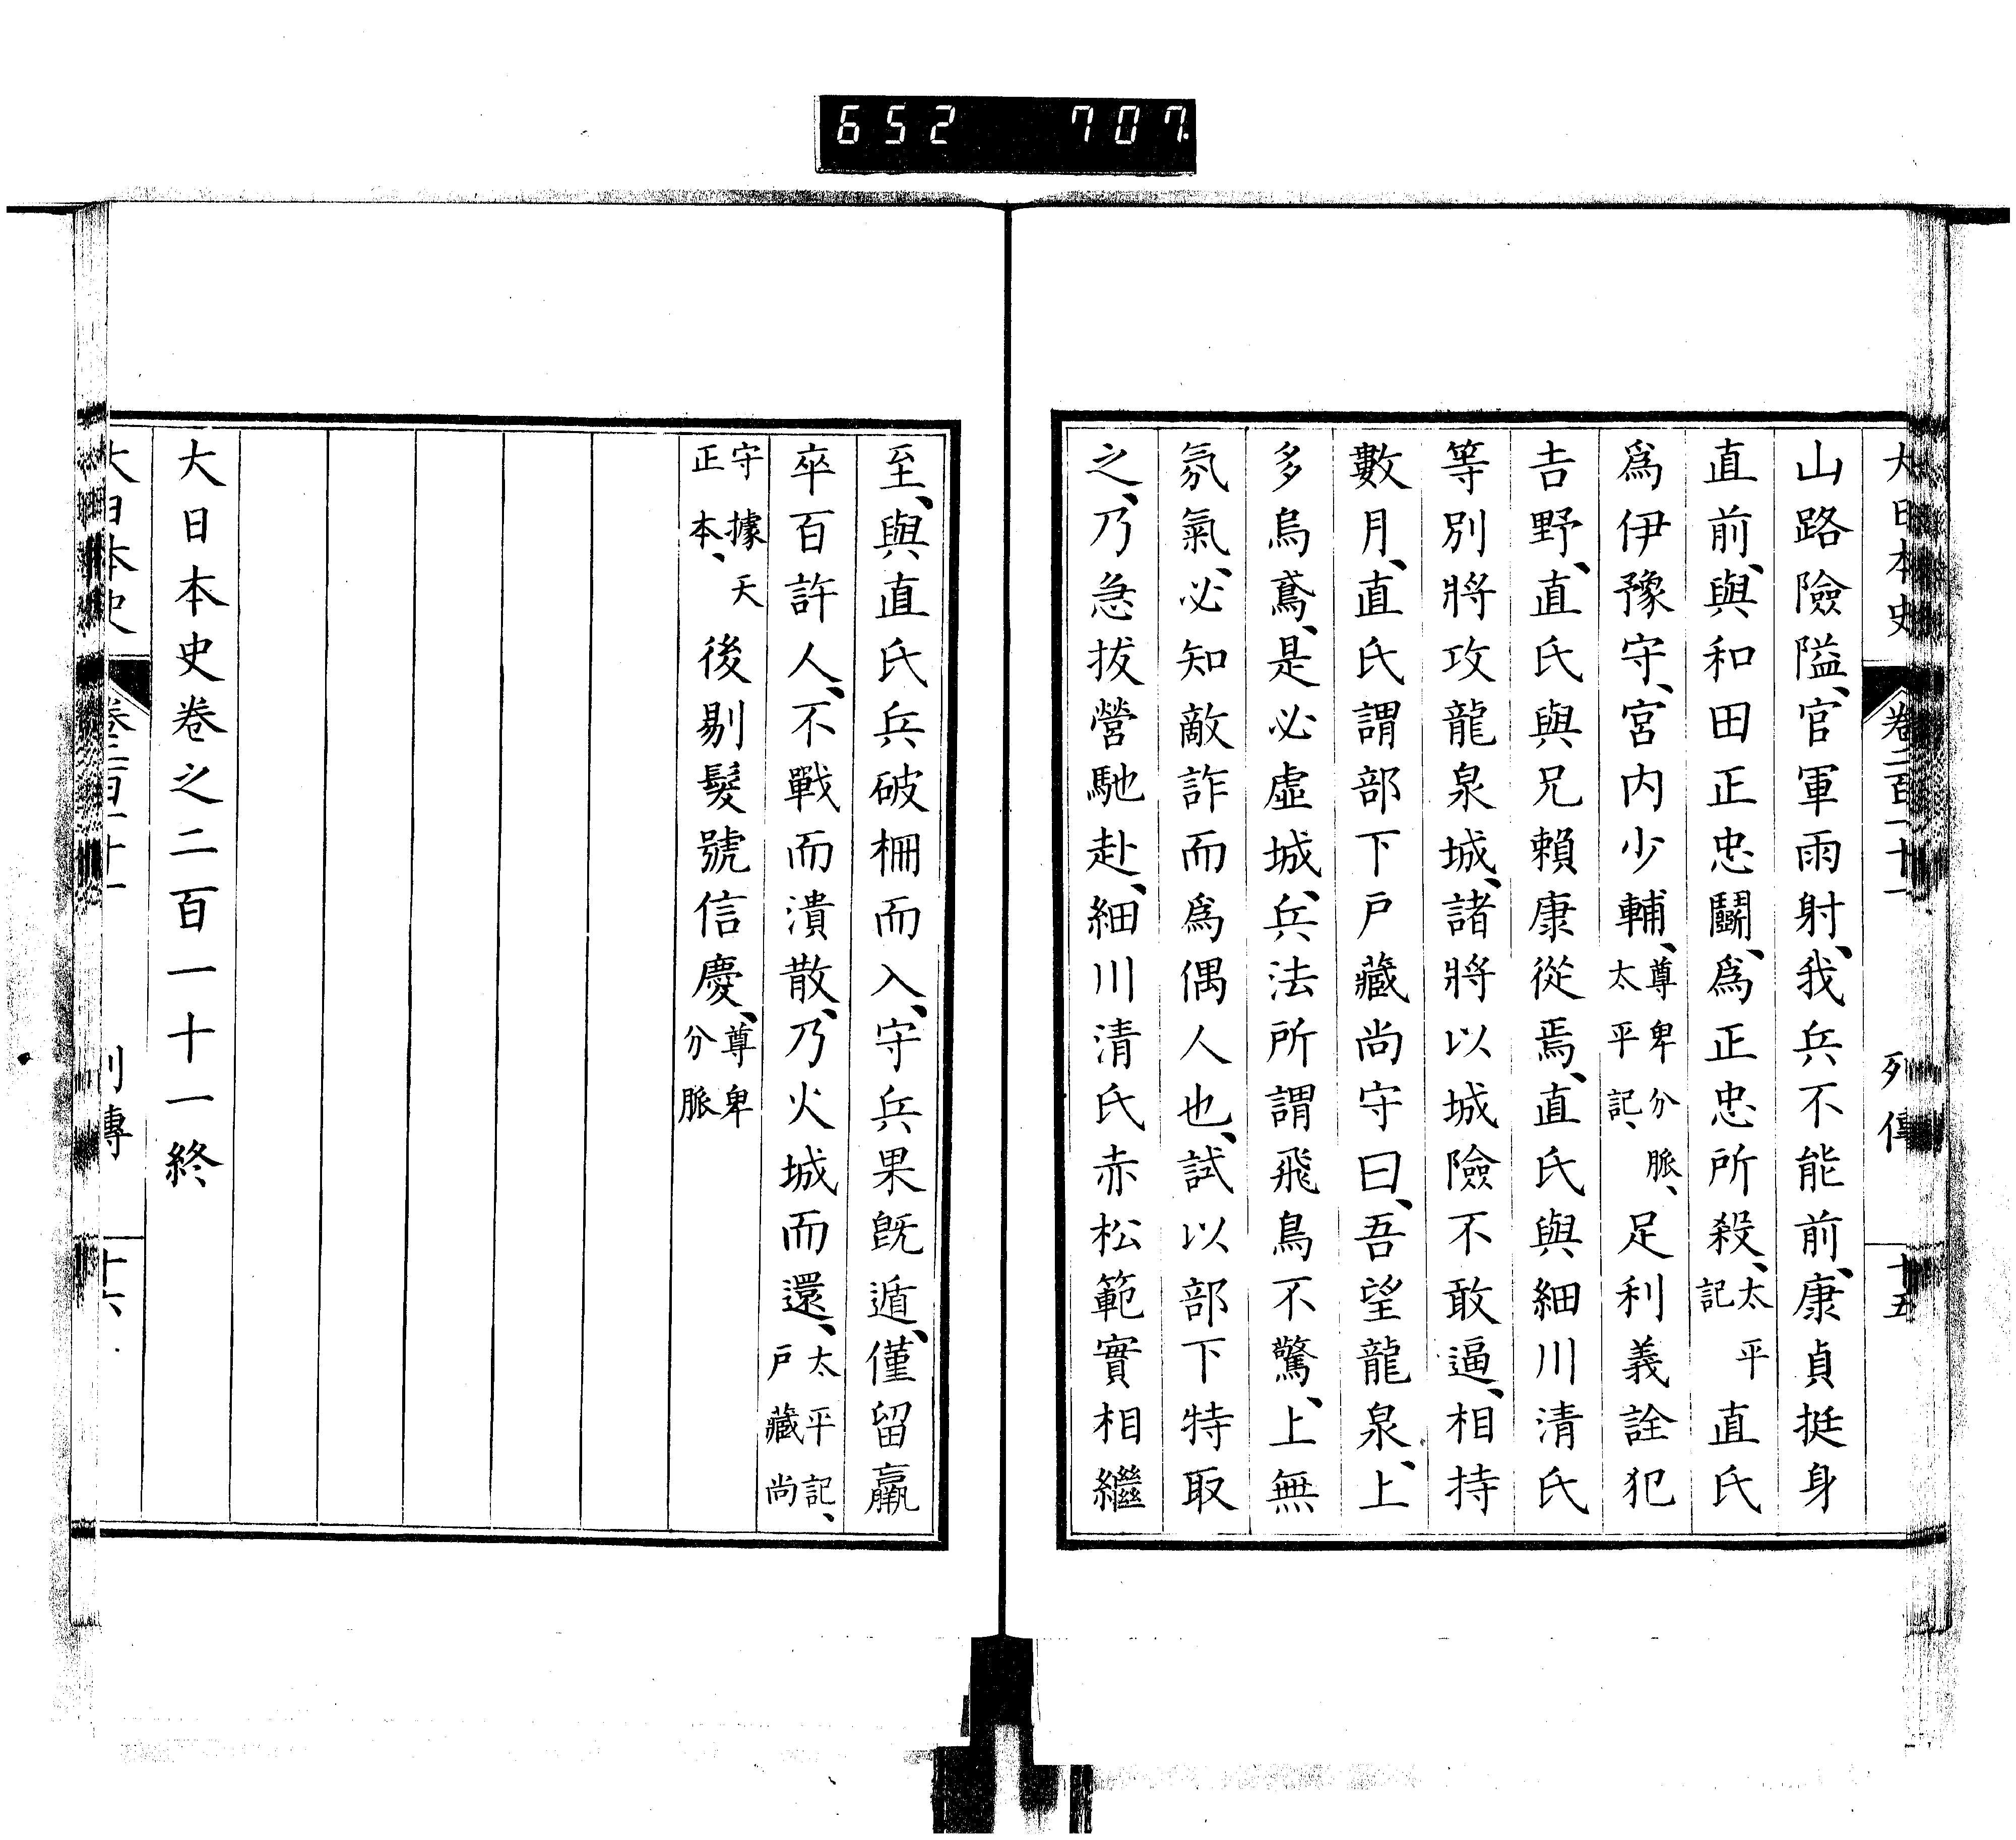 652 707
大日本史 卷二百一十一 列傳 十五
山路險隘、官軍雨射、我兵不能前、康貞挺身
直前、與和田正忠鬭、爲正忠所殺、太平記直氏
爲伊豫守、宮内少輔、尊卑分脈、太平記、足利義詮犯
吉野、直氏與兄賴康從焉、直氏與細川清氏
等別將攻龍泉城、諸將以城險不敢逼、相持
數月、直氏謂部下戸藏尚守曰、吾望龍泉、上
多烏鳶、是必虛城、兵法所謂飛鳥不驚、上無
氛氣、必知敵詐而爲偶人也、試以部下特取
之、乃急拔營馳赴、細川清氏赤松範實相繼
至、與直氏兵破柵而入、守兵果既遁、僅留羸
卒百許人、不戰而潰散、乃火城而還、太平記、戸藏尚
守據天正本、後剔髮號信慶、尊卑分脈
大日本史卷之二百一十一終
大日本史 卷二百一十一 列傳 十六